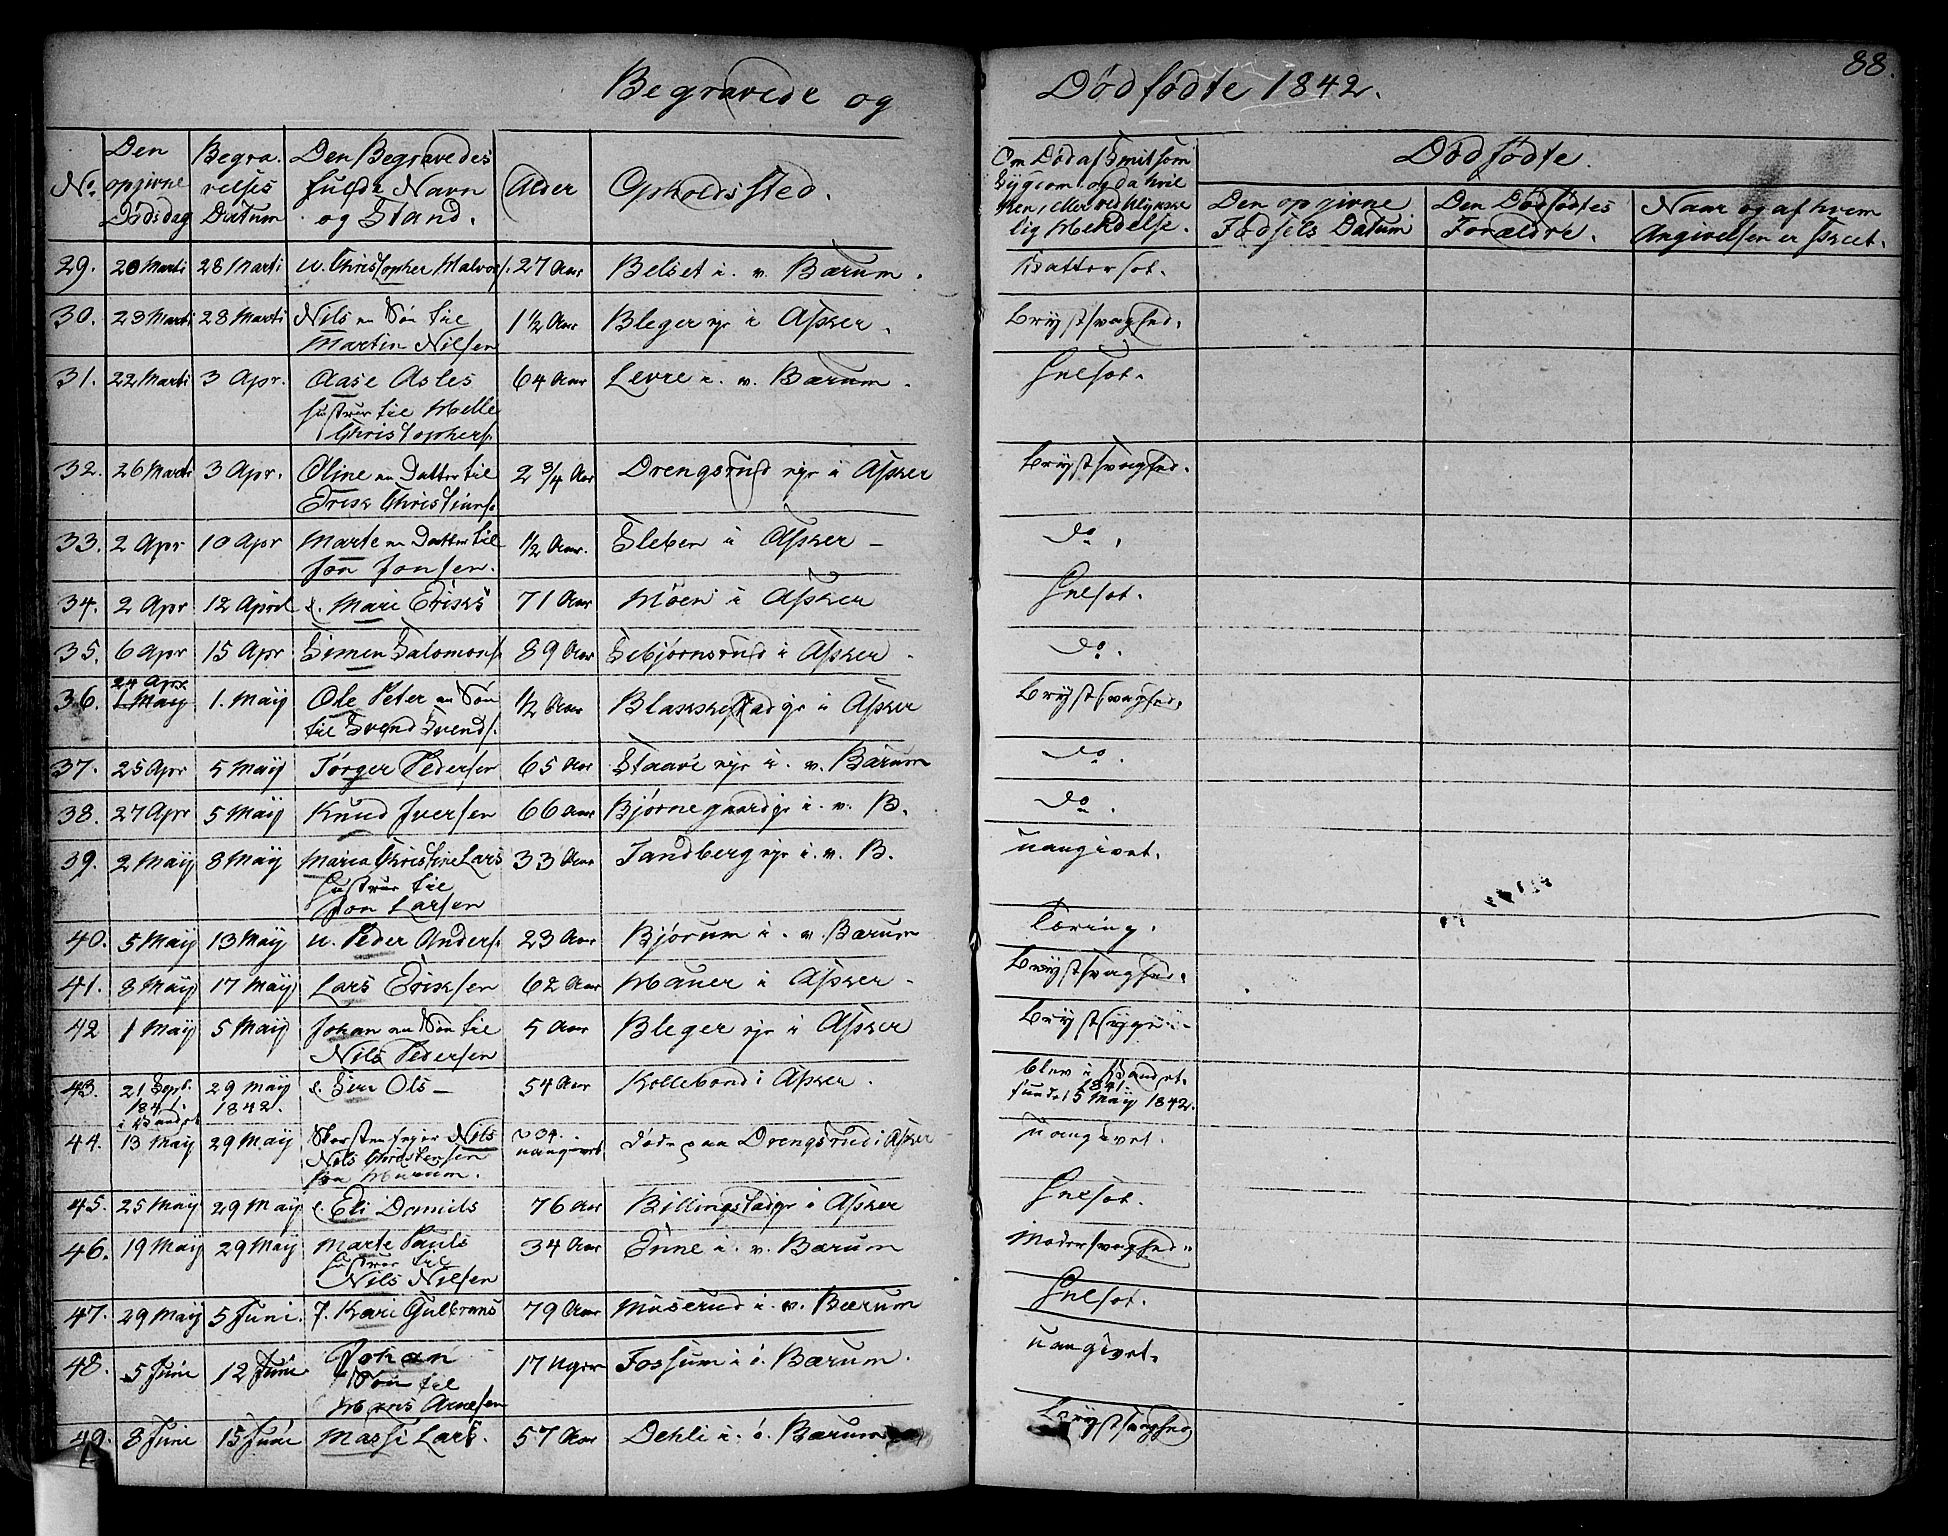 88.
Begravede og Dødfødte 1842.
No. | Den opgivne Dødsdag | Begravelses Datum | Den Begravedes fulde Navn og Stand. | Alder | Opholdssted. | Om Død af Smitsom Sygdom, og da hvilken, eller ved ulykkelig Hendelse. | Dødfødte.
Den opgivne Fødsels Datum | Den Dødfødtes Forældre. | Naar og af hvem Angivelsen er skeet.
29. 20 Marti 28 Marti u. Christopher Halvors. 27 Aar Belset i v. Bærum. Battersot.
30. 23 Marti 28 Marti Nils en Søn til 1 1/2 Aar Bleger eje i Asker. Brystsvaghed.
Martin Nilsen
31. 22 Marti 3 Apr. Aase Asles 64 Aar Levre i. v. Bærum. Helsot.
hustrue til Helle
Christophers.
32. 26 Marti 3 Apr. Oline en Datter til 2 3/4 Aar Drengsrud eje i Asker Brystsvaghed.
Erik Christians.
33. 2 Apr 10 Apr Marte en Datter til 1/2 Aar. Sleben i Asker - do.
Jon Jonsen.
34. 2 Apr 12 April e. Mari Eriks 71 Aar Moen i Asker Helsot.
35. 6 Apr 15 Apr Simen Salomons. 89 Aar Sebjørnsrud i Asker. do.
24 Apr.
36. 1 May 1. Maij Ole Peter en Søn 1/2 Aar Blakkestad ge i Asker Brystsvaghed.
til Svend Svends.
37. 25 Apr 5 Maij Tørger Pedersen 65 Aar Staavi eje i. v. Bærum do.
38. 27 Apr 5 Maij Knud Iversen 66 Aar Bjørnegaard ge i. v. B. do.
39. 2 Maij 8 Maij Maria Christine Lars 33 Aar Tandberg eje i. v. B. uangivet.
hustrue til
Jon Larsen
40. 5 Maij 13 Maij u. Peder Anders. 23 Aar Bjørum i. v. Bærum Tæring.
41. 8 Maij 17 Maij Lars Eriksen 62 Aar Hauer i Asker. Brystsvaghed.
42 1 Maij 5 Maij Johan en Søn til 5 Aar Bleger eje i Asker Brystsyge
Nils Pedersen
43. 21 Sept. 29 Maij e. Siri Ols - 54 Aar Kollebond i Asker. blev i Vandet
1841 1842. 1841
i Vandet fundet 5 Maij 1842.
44. 13 Maij 29 Maij Skorstensfejer Nils uangivet Døde paa Drengsrud i Asker uangivet.
Nils Christensen
fra Hurum.
45. 25 Maij 29 Maij e. Eli Daniels 76 Aar Billingstad ge i Asker Helsot.
46. 19 Maij 29 Maij Marte Pauls 34 Aar Enne i. v. Bærum Modersvaghed.
hustrue til
Nils Nilsen
47. 29 Maij 5 Juni. f. Kari Gulbrans 79 Aar Muserud i. v. Bærum Helsot.
48. 5 Juni 12 Juni Johan 17 Uger Fossum i ø. Bærum. uangivet.
Søn til
Hans Arnesen
49. 8 Juni 15 Juni Massi Lars. 57 Aar Dehli i. ø. Bærum Brystsvaghed